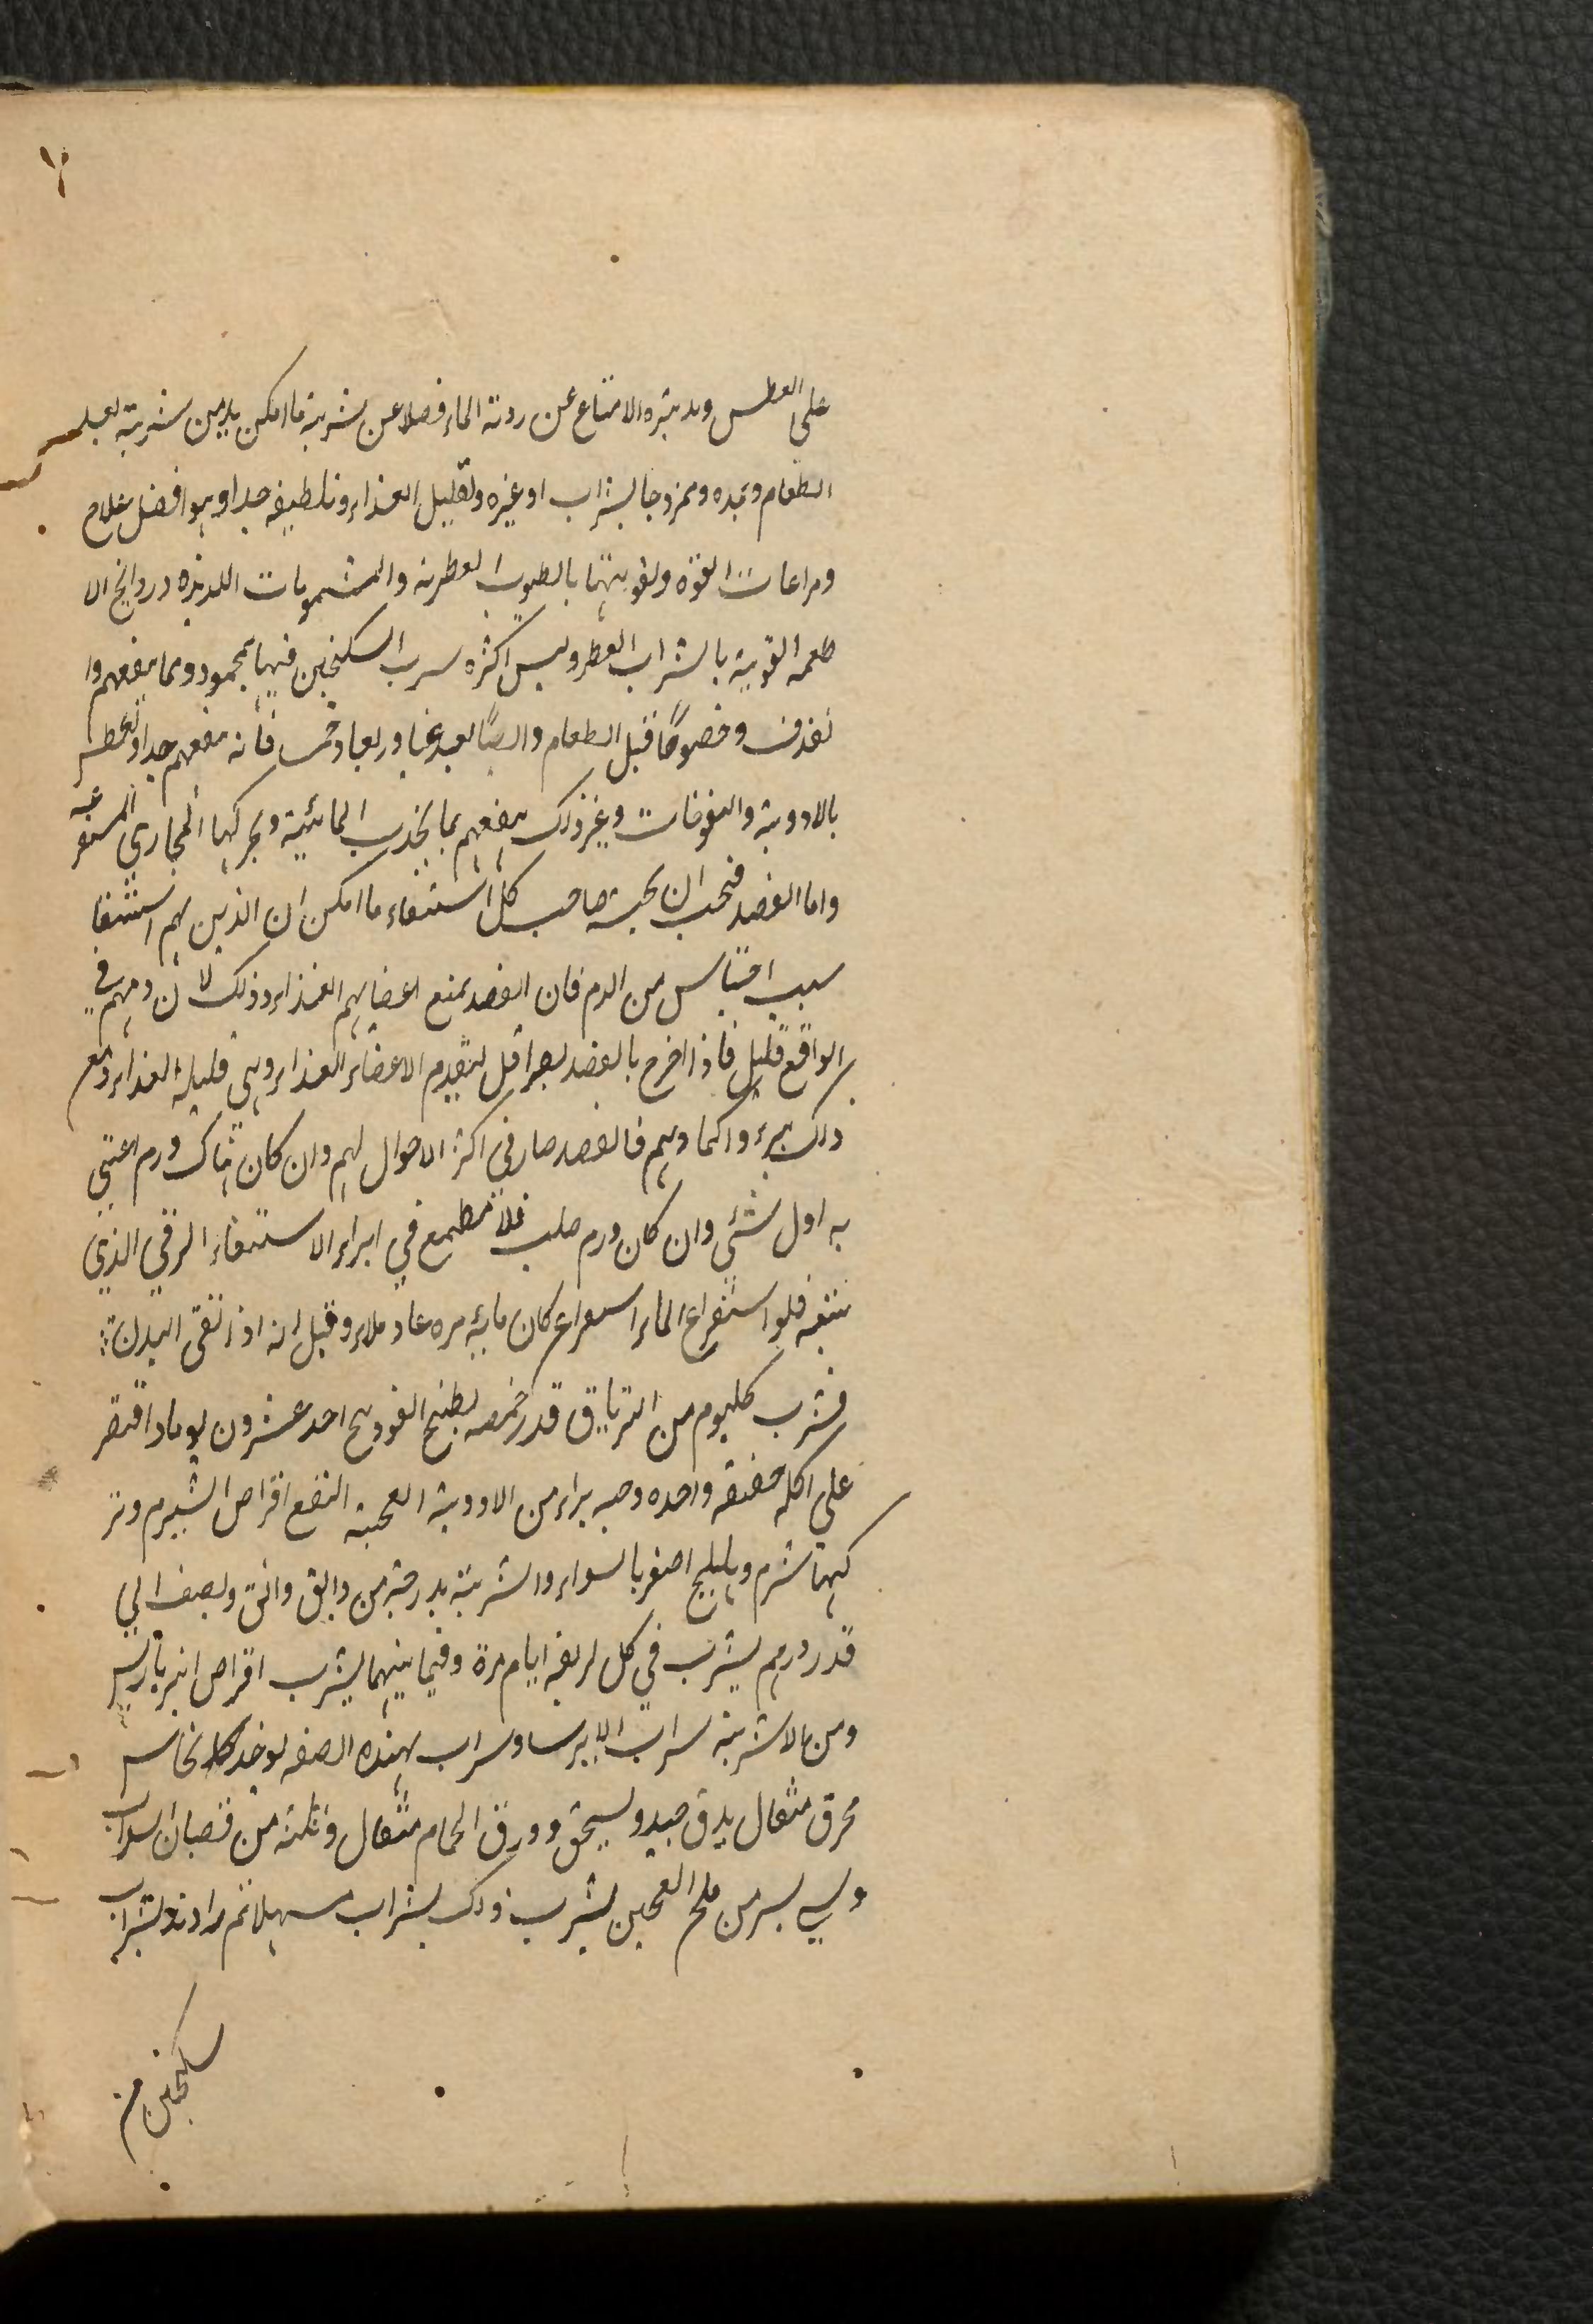 ٢
على العطس وتدبيره الامتناع عن روئة الماء فضلا عن شربة ما امكن يلزمن شربة بعد
الطعام وبمده وممزوجا بشراب او غيره وتقليل الغذاء وتلطيفه جدا وهو افضل علاج
ومراعات القوة وتقويتها بالطيوب العطرية والمشمومات اللذيذه وروائح الا
طعمه القوية بالشراب العطر وليس اكثره سرب السكنجبين فيها بمحمود ومما ينفعهم وا
لقذف وخصوصًا قبل الطعام وايضًا بعد غبا وربعا وخمس فانه ينفعهم جدا والعطس
بالادوية والنفوخات وغير ذلك ينفعهم بما يحدب المائية ويحركها الى المجاري المستفرغه
واما الفصد فيجب ان يجتنبه صاحب كل استسقاء ما امكن ان الذين بهم استسقا
سبب احتباس من الدم فان الفصد يمنع اعضايهم الغذاء وذلك لان دمهم في
الواقع قليل فاذا اخرج بالفصد بصر اقل لتقدم الاعضاء الغذاء وهي قليله الغذاء ومع
ذلك تبرء واكبادهم فالفصد ضار في اكثر الاحوال لهم وان كان هناك ورم اعتنى
به اول شئي وان كان ورم صلب فلا تطمع في ابراء الاستسقاء الزقي الذي
يتبعه فلو استفراغ الماء استفراغ كان مائه مره عاد ملاء وقيل انه اذا نقى البدن
فشرب كليوم من الترياق قدر حمصه بطبيخ الفودنج احد عشرون يوما واقتصر
على اكله خفيفه واحده وجبه براء من الادوية العجيبة النفع اقراص الشبرم وتر
كيبها شبرم وهليلج اصفر بالسواء والشربة بدرجة من دانق وانق ونصف الى
قدر درهم يشرب في كل اربعه ايام مرة وفيما بينهما يشرب اقراص انبرباريس
ومن الاشربة سراب الايرسا وسراب بهذه الصفه يوخذ نحاس
محرق مثقال يدق جيد ويسحق وورق الحمام مثقال وثلثه من قضبان السداب
وشي يسر من ملح العجين يشرب ذلك بشراب مسهلا ثم
سكنجبين من